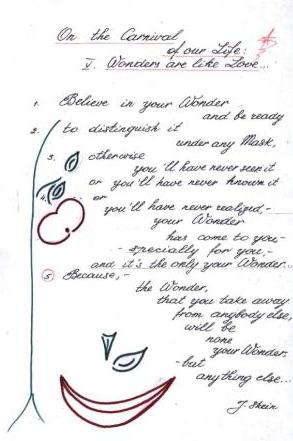 On the Carnival
of our Life:
V. Wonders are like Love...
1. Believe in your Wonder
and be ready
2. to distinguish it
under any Mask,
3. otherwise
you'll have never seen it
4. or you'll have never known it
or
you'll have never realized,-
your Wonder
has come to you-
- specially for you,-
and it's the only your Wonder...
5 Because,-
the Wonder,
that you take away
from angbody else,
will be
none
your Wonder,
-but
anything else...
J. Shein